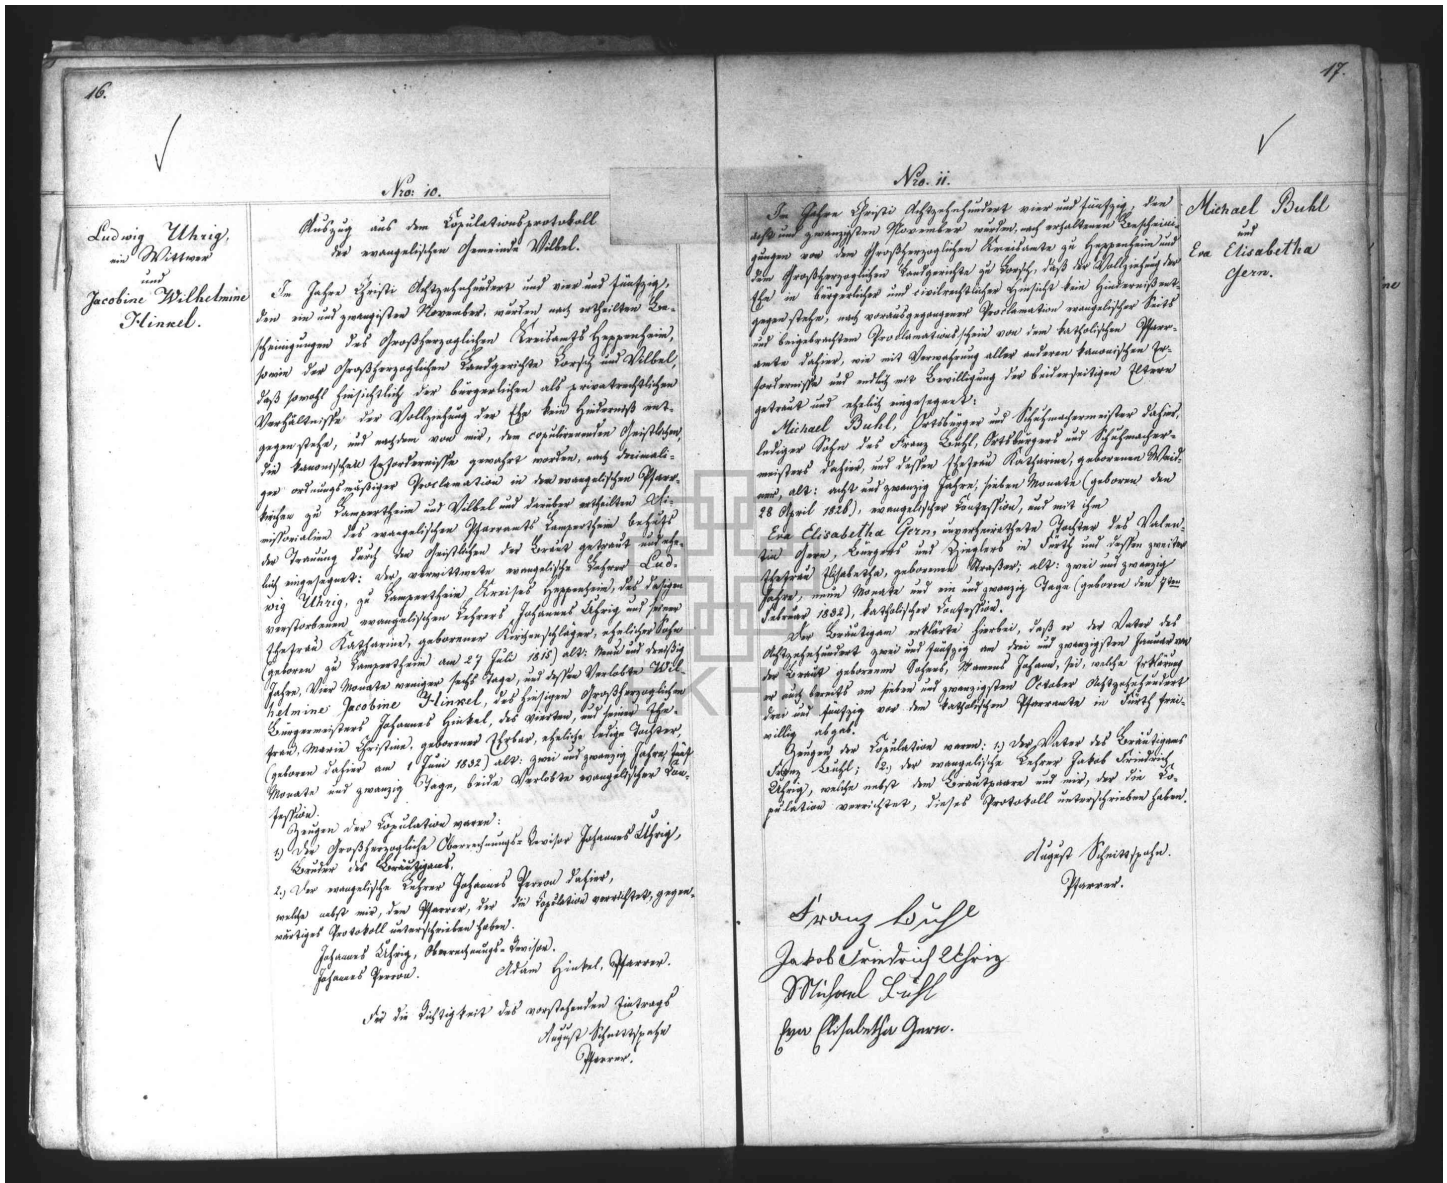 16.
Nro: 10.
Ludwig Uhrig,
ein Wittwer
und
Jacobine Wilhelmine
Hinkel.
Auszug aus dem Copulationsprotokoll
der evangelischen Gemeinde Vilbel.
Im Jahre Christi Achtzehnhundert und vier und fünfzig,
den ein und zwanzigsten November, wurden nach ertheilten Be-
scheinigungen des Großherzoglichen Kreisamts Heppenheim,
sowie der Großherzoglichen Landgerichte Lorsch und Vilbel,
daß sowohl hinsichtlich der bürgerlichen als privatrechtlichen
Verhältnisse der Vollziehung der Ehe kein Hinderniß ent-
gegen stehe, und nachdem von mir, dem copulirenden Geistlichen,
die kanonischen Erfordernisse gewahrt worden, nach dreimali-
ger ordnungsmäßiger Proclamation in den evangelischen Pfarr-
kirchen zu Lampertheim und Vilbel und darüber ertheilten Di-
missorialien des evangelischen Pfarramts Lampertheim behufs
der Trauung durch den Geistlichen der Braut getraut und ehe-
lich eingesegnet: Der verwittwete evangelische Lehrer Lud-
wig Uhrig, zu Lampertheim, Kreises Heppenheim, des dasigen
verstorbenen evangelischen Lehrers Johannes Uhrig und seiner
Ehefrau Katharine, geborener Kirchenschläger, ehelicher Sohn
(geboren zu Lampertheim am 27 Juli 1815) alt: Neun und dreißig
Jahre, Vier Monate weniger sechs Tage, und dessen Verlobte Wil-
helmine Jacobine Hinkel, des hiesigen Großherzoglichen
Bürgermeisters Johannes Hinkel, des vierten, und seiner Ehe-
frau, Marie Christine, geborener Erbar, eheliche ledige Tochter,
(geboren dahier am 1 Juni 1832) alt: zwei und zwanzig Jahre, fünf
Monate und zwanzig Tage, beide Verlobte evangelischer Con-
fession.
Zeugen der Copulation waren:
1.) Der Großherzogliche Oberrechnungs-Revisor Johannes Uhrig,
Bruder des Bräutigams.
2.) Der evangelische Lehrer Johannes Perron dahier,
welche nebst mir, dem Pfarrer, der die Copulation verrichtet, gegen-
wärtiges Protokoll unterschrieben haben.
Johannes Uhrig, Oberrechnungs-Revisor.
Johannes Perron. Adam Hinkel, Pfarrer.
Für die Richtigkeit des vorstehenden Eintrags
August Schnittspahn
Pfarrer.
17.
Nro. 11.
Michael Buhl
und
Eva Elisabetha
Gern.
Im Jahre Christi Achtzehnhundert vier und fünfzig, den
acht und zwanzigsten November wurden, nach erhaltenen Bescheini-
gungen von dem Großherzoglichen Kreisamte zu Heppenheim und
dem Großherzoglichen Landgerichte zu Lorsch, daß der Vollziehung der
Ehe in bürgerlicher und civilrechtlicher Hinsicht kein Hinderniß ent-
gegen stehe, nach vorausgegangener Proclamation evangelischer Seits
und beigebrachtem Proclamationsschein von dem katholischen Pfarr-
amte dahier, wie mit Verwahrung aller anderen kanonischen Er-
fordernisse und endlich mit Bewilligung der beiderseitigen Eltern
getraut und ehelich eingesegnet:
Michael Buhl, Ortsbürger und Schuhmachermeister dahier,
lediger Sohn des Franz Buhl, Ortsbürgers und Schuhmacher-
meisters dahier, und dessen Ehefrau Katharine, geborenen Weid-
ner, alt: acht und zwanzig Jahre, sieben Monate (geboren den
28 April 1826), evangelischer Confession, und mit ihm
Eva Elisabetha Gern, unverheirathete Tochter des Valen-
tin Gern, Bürgers und Zieglers in Fürth und dessen zweiter
Ehefrau Elisabetha, geborenen Straßer; alt: zwei und zwanzig
Jahre, neun Monate und ein und zwanzig Tage (geboren den 7ten
Februar 1832), katholischer Confession.
Der Bräutigam erklärte hierbei, daß er der Vater des
Achtzehnhundert zwei und fünfzig am drei und zwanzigsten Januar von
der Braut geborenen Sohnes, Namens Johann, sei, welche Erklärung
er auch bereits am sieben und zwanzigsten October Achtzehnhundert
drei und fünfzig vor dem katholischen Pfarramte in Fürth frei-
willig abgab.
Zeugen der Copulation waren: 1.) Der Vater des Bräutigams
Franz Buhl; 2.) der evangelische Lehrer Jakob Friedrich
Uhrig, welche nebst dem Brautpaare und mir, der die Co-
pulation verrichtet, dieses Protokoll unterschrieben haben.
August Schnittspahn.
Pfarrer.
Franz Buhl
Jakob Friedrich Uhrig
Michael Buhl
Eva Elisabetha Gern.